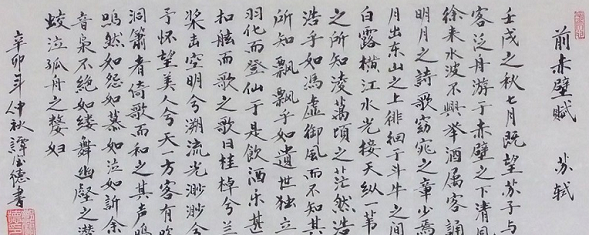 前赤壁賦 苏轼
壬戌之秋七月既望苏子与
客泛舟游于赤壁之下清風
徐来水波不興举酒属客誦
明月之詩歌窈窕之章少焉
月出东山之上徘徊于斗牛之间
白露横江水光接天纵一苇
之所如凌萬頃之茫然浩
浩乎如馮虚御風而不知其
所知飘飘乎如遺世独立
羽化而登仙于是飲酒乐甚
扣舷而歌之歌曰桂棹兮兰
桨击空明兮溯流光渺渺兮
予怀望美人兮天一方客有吹
洞箫者倚歌而和之其声呜
呜然如怨如慕如泣如訴余
音袅不絕如缕舞幽壑之潜
蛟泣孤舟之嫠妇
辛卯年仲秋譚德書